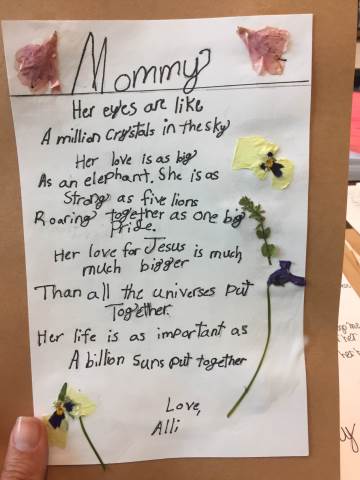 Mommy
Her eyes are like
A million crystals in the sky
Her love is as big
As an elephant. She is as
Strong as five lions
Roaring together as one big
Pride.
Her love for Jesus is much
much bigger
Than all the universes put
Together.
Her life is as important as
A billion suns put together
Love,
Alli